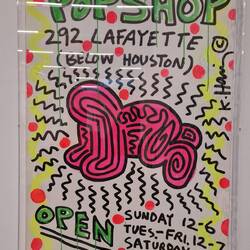 POP SHOP
292 LAFAYETTE
(BELOW HOUSTON)
K. Haring ©
OPEN
SUNDAY 12-6
TUES-FRI. 12-7
SATURDAY